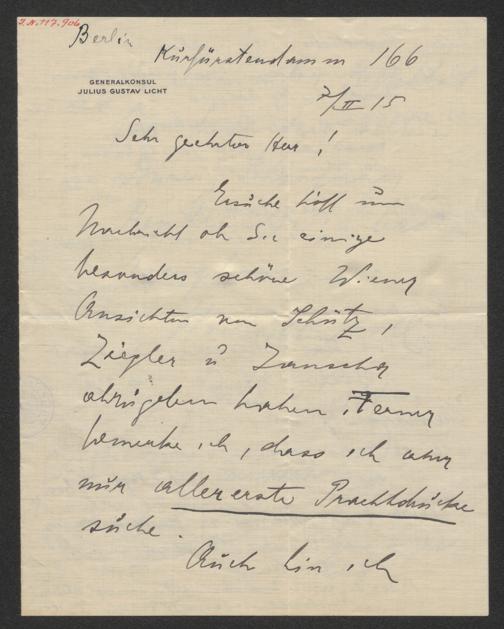 I.N. 117.906
Berlin
Kurfürstendamm 166
GENERALKONSUL
JULIUS GUSTAV LICHT
7/II 15
Sehr geehrter Herr!
Ersuche höfl um
Nachricht ob Sie einige
besonders schöne Wiener
Ansichten von Schütz,
Ziegler u Janscha
abzugeben haben. Ferner
bemerke ich, dass ich aber
nur allererste Prachtdrücke
suche.
Auch bin ich